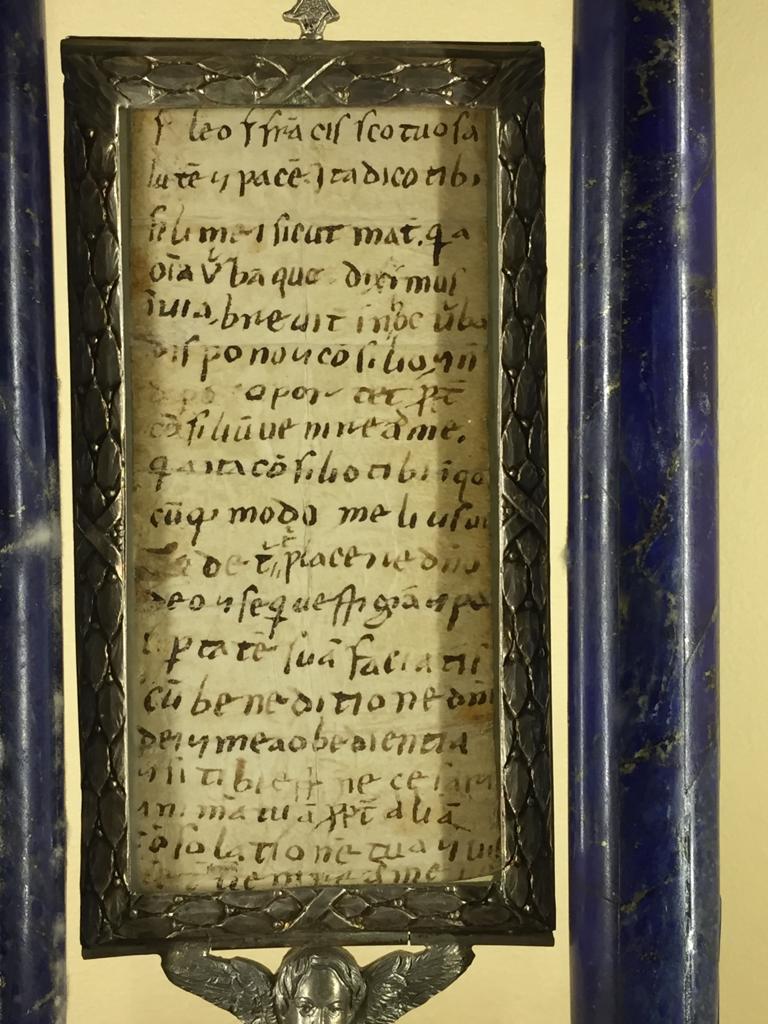 f leo f frācis scotuo sa
lutē ⁊ pacē Ita dico tibi
fili mei sicut mat. q̄a
oīa v̌ba que diximus
ī uia breuit in hoc ǔbo
dispono ⁊ cōsilio, ⁊ n̄
opor tet ꝓpt̄
cōsiliū uenire ad me.
q̄a ita cōsilio tibi ī qo
cūq; modo melius ui
det t̄ placere dn̄o
deo ⁊ seq̄ uestigiā ⁊ pa
uꝑtatē suā faciatis
cū beneditione dn̄i
dei ⁊ mea obedientia
⁊ si tibi est necesariū
animā tuā ꝓpt̄ aliā
cōsolationē tuā ⁊ uis
uenire ad me